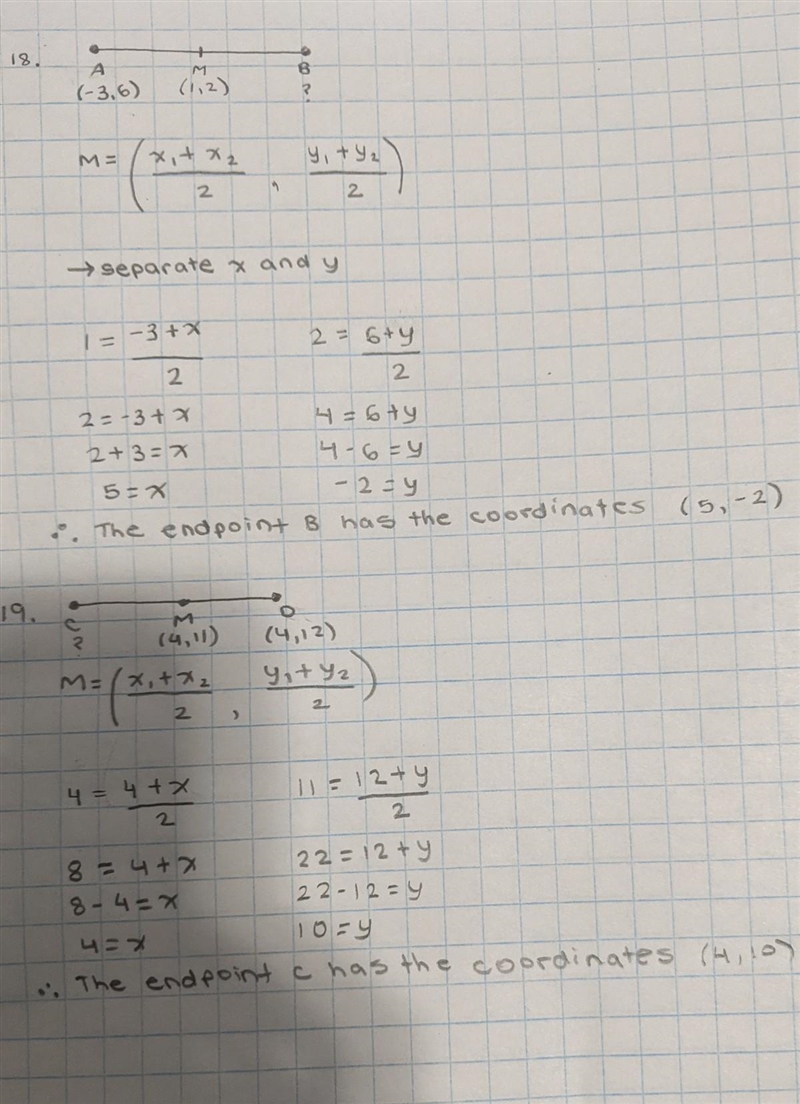 18.
A M B
(-3,6) (1,2) ?
M = (x₁ + x₂ / 2 , y₁ + y₂ / 2)
→ separate x and y
1 = -3 + x / 2 2 = 6 + y / 2
2 = -3 + x 4 = 6 + y
2 + 3 = x 4 - 6 = y
5 = x -2 = y
∴ The endpoint B has the coordinates (5, -2)
19.
C M D
? (4,11) (4,12)
M = (x₁ + x₂ / 2 , y₁ + y₂ / 2)
4 = 4 + x / 2 11 = 12 + y / 2
8 = 4 + x 22 = 12 + y
8 - 4 = x 22 - 12 = y
4 = x 10 = y
∴ The endpoint C has the coordinates (4, 10)